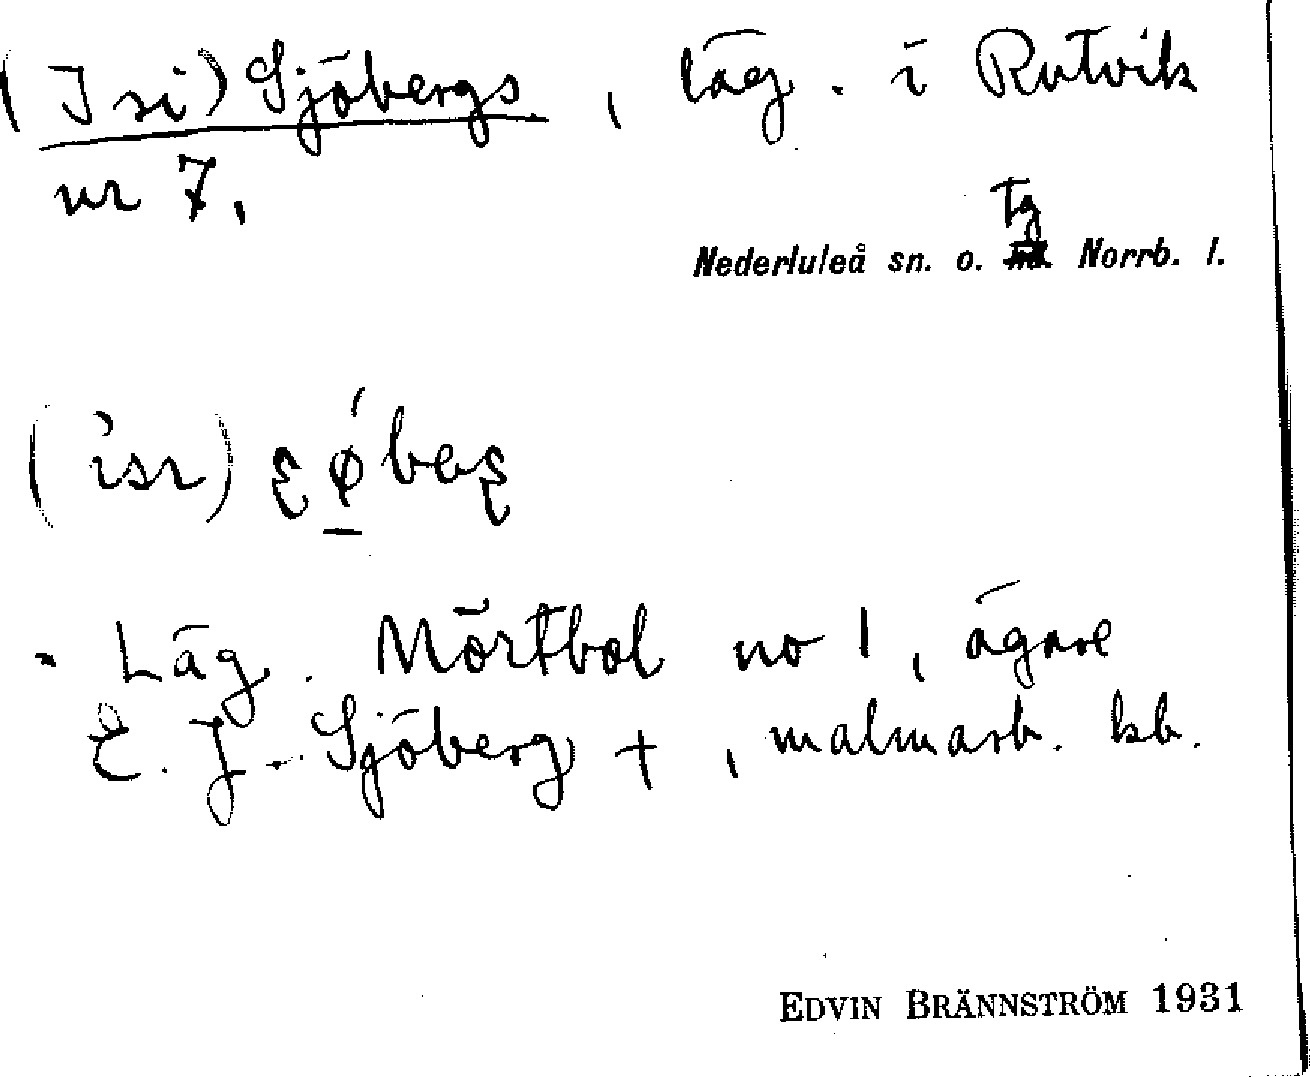 (Isri) Sjöbergs, läg. i Rutvik
nr 7,
tg
Nederluleå sn. o. Norrb. l.
(isr)
- Läg. Mörtbol no 1, ägare
E. J. Sjöberg +, malmarb. kb.
EDVIN BRÄNNSTRÖM 1931